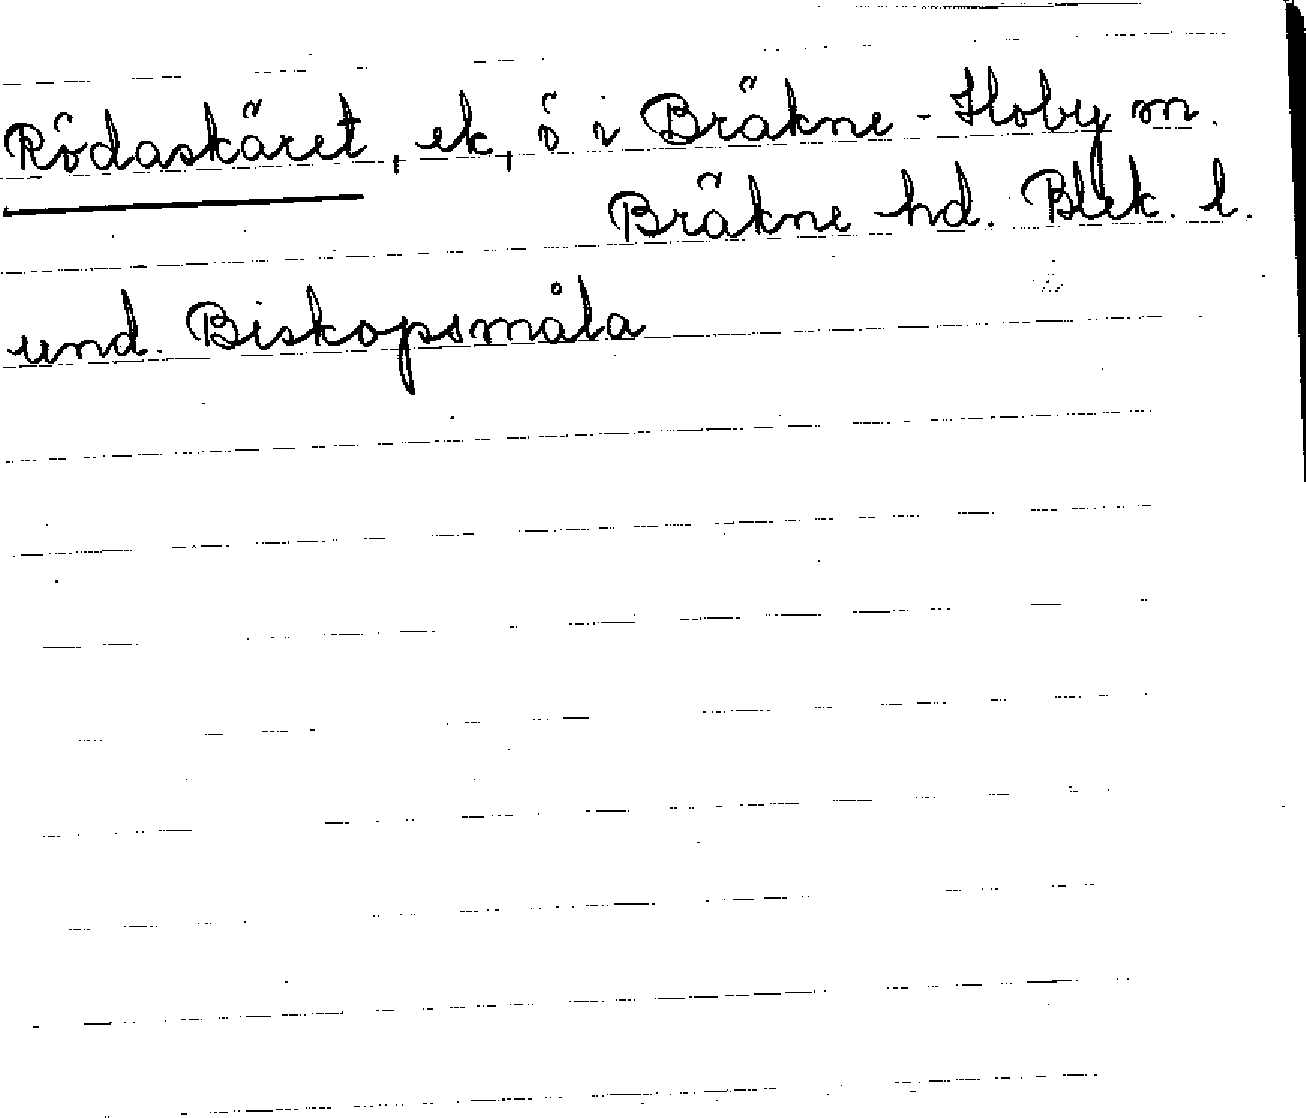 Rödaskäret, ek, ö i Bräkne-Hoby sn.
Bräkne hd. Blek. l.
und. Biskopsmåla